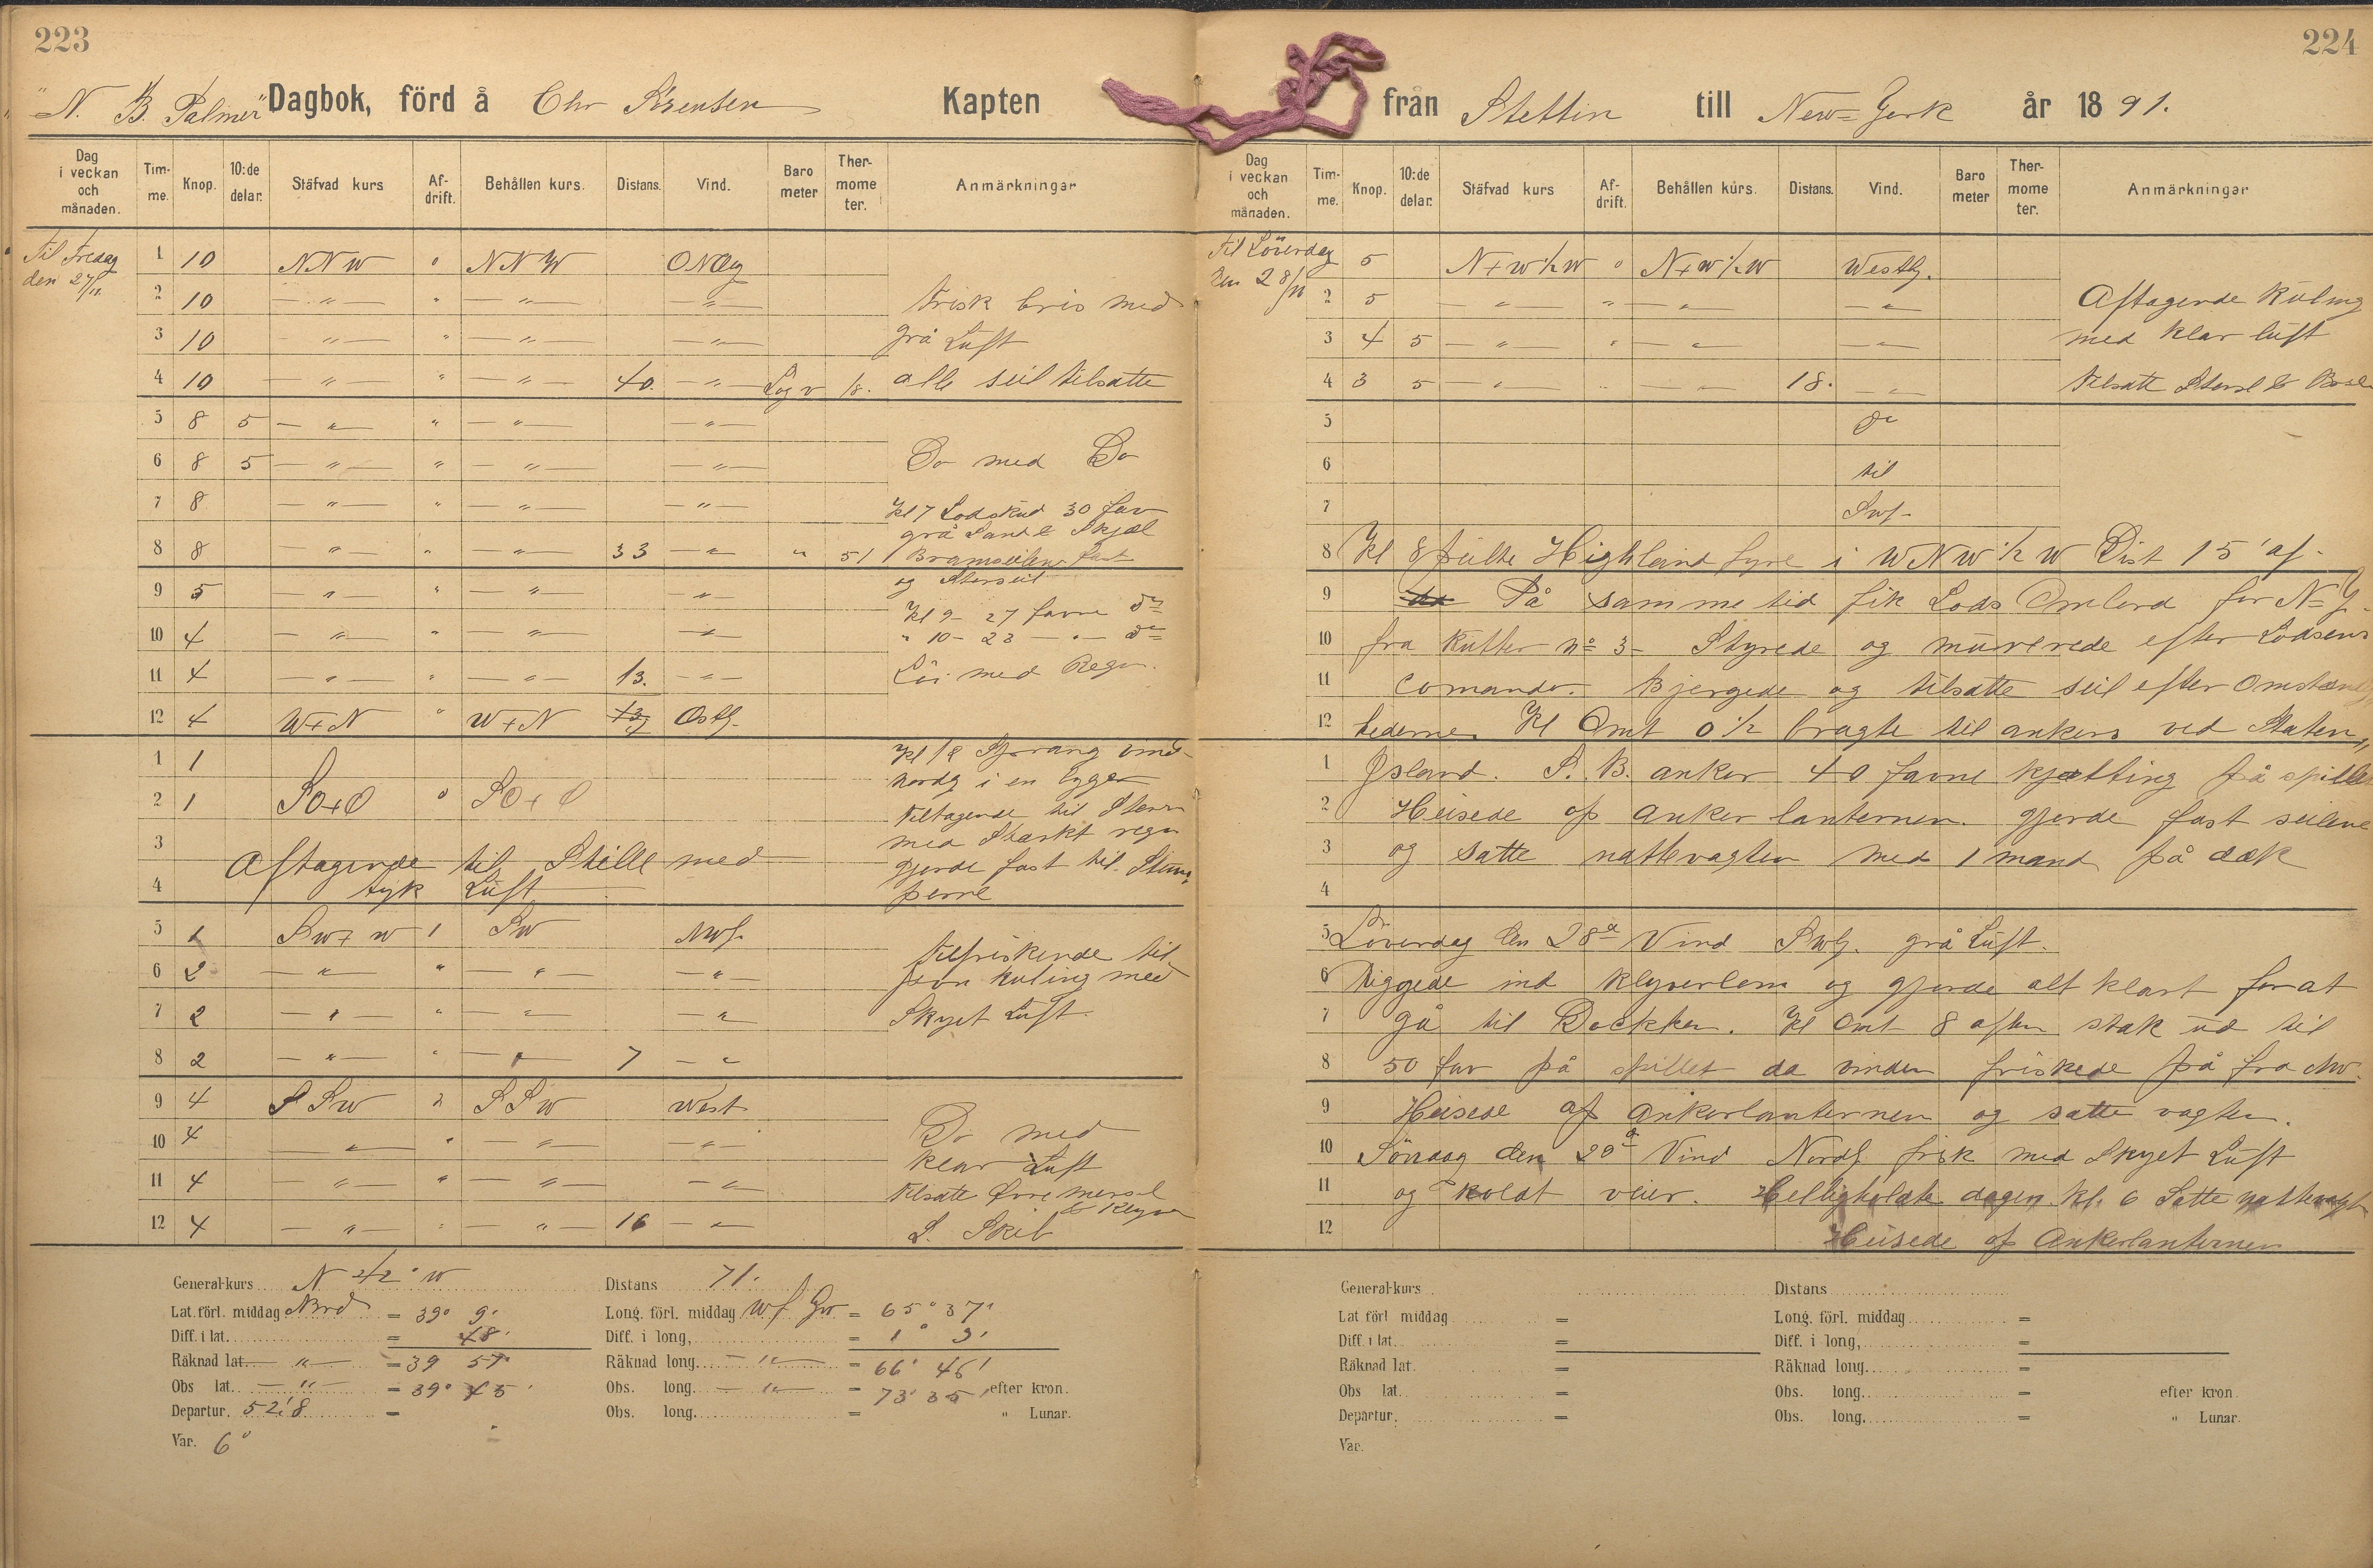 223
"N. B. Palmer" Dagbok, förd å Chr Sörensen Kapten
Dag i veckan och månaden. Timme. Knop. 10:de delar. Stäfvad kurs Afdrift. Behållen kurs. Distans. Vind. Barometer Thermometer. Anmärkningar
Til Fredag 1 10 NNW 0 NNW
den 27/11.
2 10 — " — " — " — — " — Frisk bris med
3 10 — " — " — " — — " — grå Luft
4 10 — " — " — " — 40. — " — alle seil tilsatte
5 8 5 — " — " — " — — " —
6 8 5 — " — " — " — — " — Do med Do
7 8 — " — " — " — — " — Kl 7 Lodskud 30 fav
grå Sand & Skjæl
8 8 — " — " — " — 33 — " — " 51 Bramseilene fast
og Storseil
9 5 — " — " — " — — " — Kl 9 - 27 favne Do
10 4 — " — " — " — — " — " 10 - 23 — " — Do
11 4 — " — " — " — 13. — " — med Regn.
12 4 W+N " W+N Ostl.
1 1 Kl 12 Sprang vind
nordl i en bygge
2 1 SO+O 0 SO+O Tiltagende til Storm
3 med Stærkt regn
Aftagende til Stille med gjorde fast til Stum
4 tyk Luft perne
5 1 SW+W 1 SW NWl.
6 2 — " — " — " — — " — Tilfriskende til
jevn kuling med
7 2 — " — " — " — — " — Skyet Luft.
8 2 — " — " — " — 7 — " —
9 4 SSW " SSW West
10 4 — " — " — " — — " — Do med
11 4 — " — " — " — — " — klar Luft
Tilsatte Övre mersel
& Klyver
12 4 — " — " — " — 16 — " — L. Skib
General-kurs N 42° W Distans 71.
Lat. förl. middag Nord = 39° 9' Long. förl. middag W f Gr = 65° 37'
Diff. i lat. = 48' Diff. i long, = 1° 9'
Räknad lat. — " — = 39 57' Räknad long. — " — = 66° 46'
Obs lat. — " — = 39° 45' Obs. long. — " — = 73° 35' efter kron.
Departur. 52,8 = Obs. long. = " Lunar.
Var. 6°
224
från Stettin till New-York år 1891.
Dag i veckan och månaden. Timme. Knop. 10:de delar. Stäfvad kurs Afdrift. Behållen kurs. Distans. Vind. Barometer Thermometer. Anmärkningar
Til Löverdag 1 5 N+W½W 0 N+W½W Westl.
den 28/11
2 5 — " — " — " — — " — Aftagende Kuling
3 4 5 — " — " — " — — " — med klar luft
4 3 5 — " — " — " — 18. — " — Tilsatte Storsl &
5 Do
6 til
7 SWl.
8 Kl 8 peilte Highland fyre i WNW ½ W Dist 15' af.
9 På samme tid fik Lods Ombord for N-Y.
10 fra Kutter no 3 - Styrede og manverede efter Lodsens
11 Comando. Bjergede og tilsatte seil efter Omstændig,,
12 hederne. Kl Omt 0½ bragte til ankers ved Staten,,
1 Jsland. S. B. anker 40 favne kjætting på spillet
2 Heisede op anker lanternen. gjorde fast seilene
3 og satte nattevagten med 1 mand på dæk
4
5 Löverdag den 28de Vind SWl. grå Luft.
6 Riggede ind klyverbom og gjorde alt klart for at
7 gå til Dockken. Kl Omt 8 aften stak ud til
8 50 fav på spillet da vinden friskede på fra NW.
9 Heisede op Ankerlanternen og satte vagten.
10 Söndag den 29de Vind Nordl frisk med Skyet Luft
11 og koldt veier. Helligholdt dagen. Kl. 6 Satte nattevagt
12 Heisede op Ankerlanternen
General-kurs Distans
Lat förl middag = Long. förl. middag =
Diff. i lat. = Diff. i long, =
Räknad lat. = Räknad long. =
Obs lat. = Obs. long. = efter kron.
Departur. = Obs. long. = " Lunar.
Var.